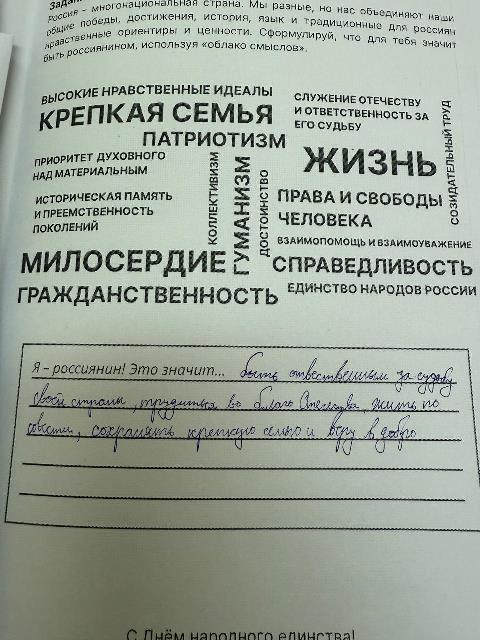 Россия – многонациональная страна. Мы разные, но нас объединяют наши
общие победы, достижения, история, язык и традиционные для россиян
нравственные ориентиры и ценности. Сформулируй, что для тебя значит
быть россиянином, используя «облако смыслов».
ВЫСОКИЕ НРАВСТВЕННЫЕ ИДЕАЛЫ
КРЕПКАЯ СЕМЬЯ
СЛУЖЕНИЕ ОТЕЧЕСТВУ
И ОТВЕТСТВЕННОСТЬ ЗА
ЕГО СУДЬБУ
СОЗИДАТЕЛЬНЫЙ ТРУД
ПАТРИОТИЗМ
ЖИЗНЬ
ПРИОРИТЕТ ДУХОВНОГО
НАД МАТЕРИАЛЬНЫМ
КОЛЛЕКТИВИЗМ
ГУМАНИЗМ
ДОСТОИНСТВО
ИСТОРИЧЕСКАЯ ПАМЯТЬ
И ПРЕЕМСТВЕННОСТЬ
ПОКОЛЕНИЙ
ПРАВА И СВОБОДЫ
ЧЕЛОВЕКА
ВЗАИМОПОМОЩЬ И ВЗАИМОУВАЖЕНИЕ
МИЛОСЕРДИЕ
СПРАВЕДЛИВОСТЬ
ГРАЖДАНСТВЕННОСТЬ
ЕДИНСТВО НАРОДОВ РОССИИ
Я – россиянин! Это значит... быть отвественным за судьбу
своей страны, трудиться во благо Отечества жить по
совести, сохранять крепкую семью и веру в добро
С Днём народного единства!